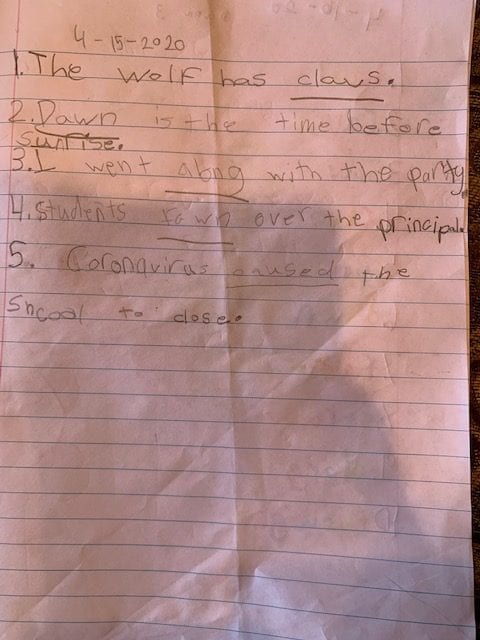 4-15-2020
1. The wolf has claws.
2. Dawn is the time before
sunrise.
3. I went along with the party.
4. Students fawn over the principal.
5. Coronavirus caused the
Shcool to close.